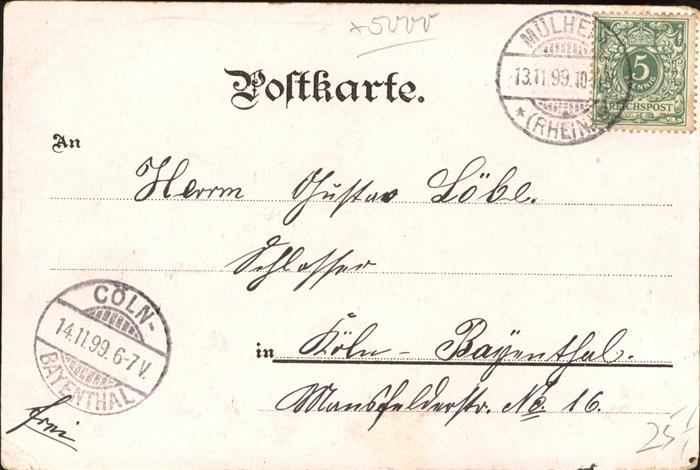 +5000
Postkarte.
MÜLHEIM
13.11.99.10-
* (RHEIN)
5
PFENNIG
REICHSPOST
An
Herrn Gustav Löbl.
Schlosser
CÖLN-
14.11.99.6-7V.
BAYENTHAL
in Köln - Bayenthal.
Mansfelderstr. No. 16.
frei
25